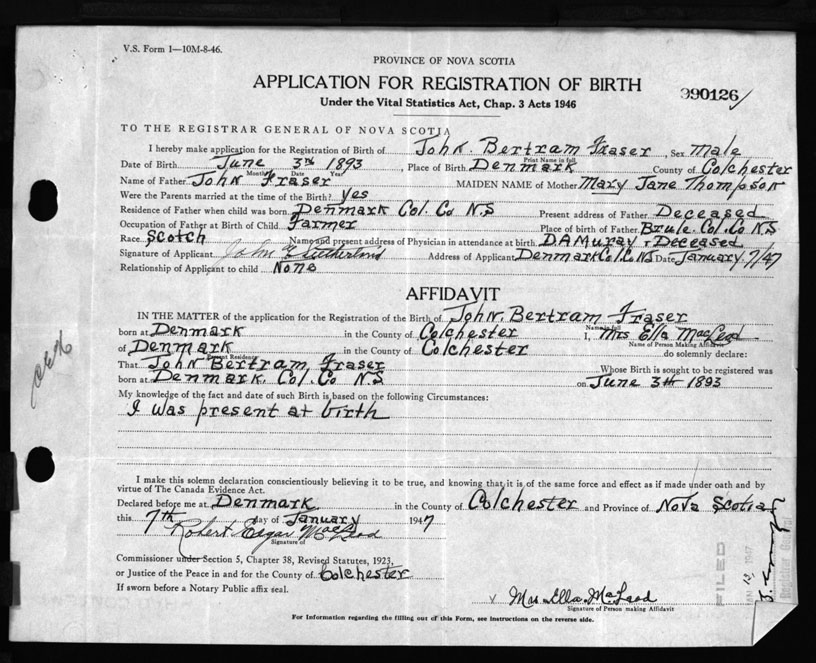 V.S. Form 1—10M-8-46.
PROVINCE OF NOVA SCOTIA
APPLICATION FOR REGISTRATION OF BIRTH
990126/
Under the Vital Statistics Act, Chap. 3 Acts 1946
TO THE REGISTRAR GENERAL OF NOVA SCOTIA
I hereby make application for the Registration of Birth of John Bertram Fraser, Sex Male
Print Name in full
Date of Birth June 3rd 1893, Place of Birth Denmark County of Colchester
Month Date Year
Name of Father John Fraser MAIDEN NAME of Mother Mary Jane Thompson
Were the Parents married at the time of the Birth? Yes
Residence of Father when child was born Denmark Col. Co N.S Present address of Father Deceased
Occupation of Father at Birth of Child Farmer Place of birth of Father Brule Col. Co N.S
Race Scotch Name and present address of Physician in attendance at birth D.A Muray Deceased
Signature of Applicant John Address of Applicant Denmark Col. Co N.S Date January 7/47
Relationship of Applicant to child None
AFFIDAVIT
IN THE MATTER of the application for the Registration of the Birth of John Bertram Fraser
Name in full
born at Denmark in the County of Colchester I, Mrs Ella MacLeod
Name of Person Making Affidavit
of Denmark in the County of Colchester do solemnly declare:
Present Residence
That John Bertram Fraser Whose Birth is sought to be registered was
born at Denmark Col. Co N.S on June 3th 1893
My knowledge of the fact and date of such Birth is based on the following Circumstances:
I was present at birth
I make this solemn declaration conscientiously believing it to be true, and knowing that it is of the same force and effect as if made under oath and by
virtue of The Canada Evidence Act.
Declared before me at Denmark in the County of Colchester and Province of Nova Scotia
this 7th day of January 1947
Robert Edgar MacLeod
Signature of
Commissioner under Section 5, Chapter 38, Revised Statutes, 1923,
or Justice of the Peace in and for the County of Colchester
If sworn before a Notary Public affix seal.
Mrs Ella MacLeod
Signature of Person making Affidavit
For Information regarding the filling out of this Form, see instructions on the reverse side.
FILED